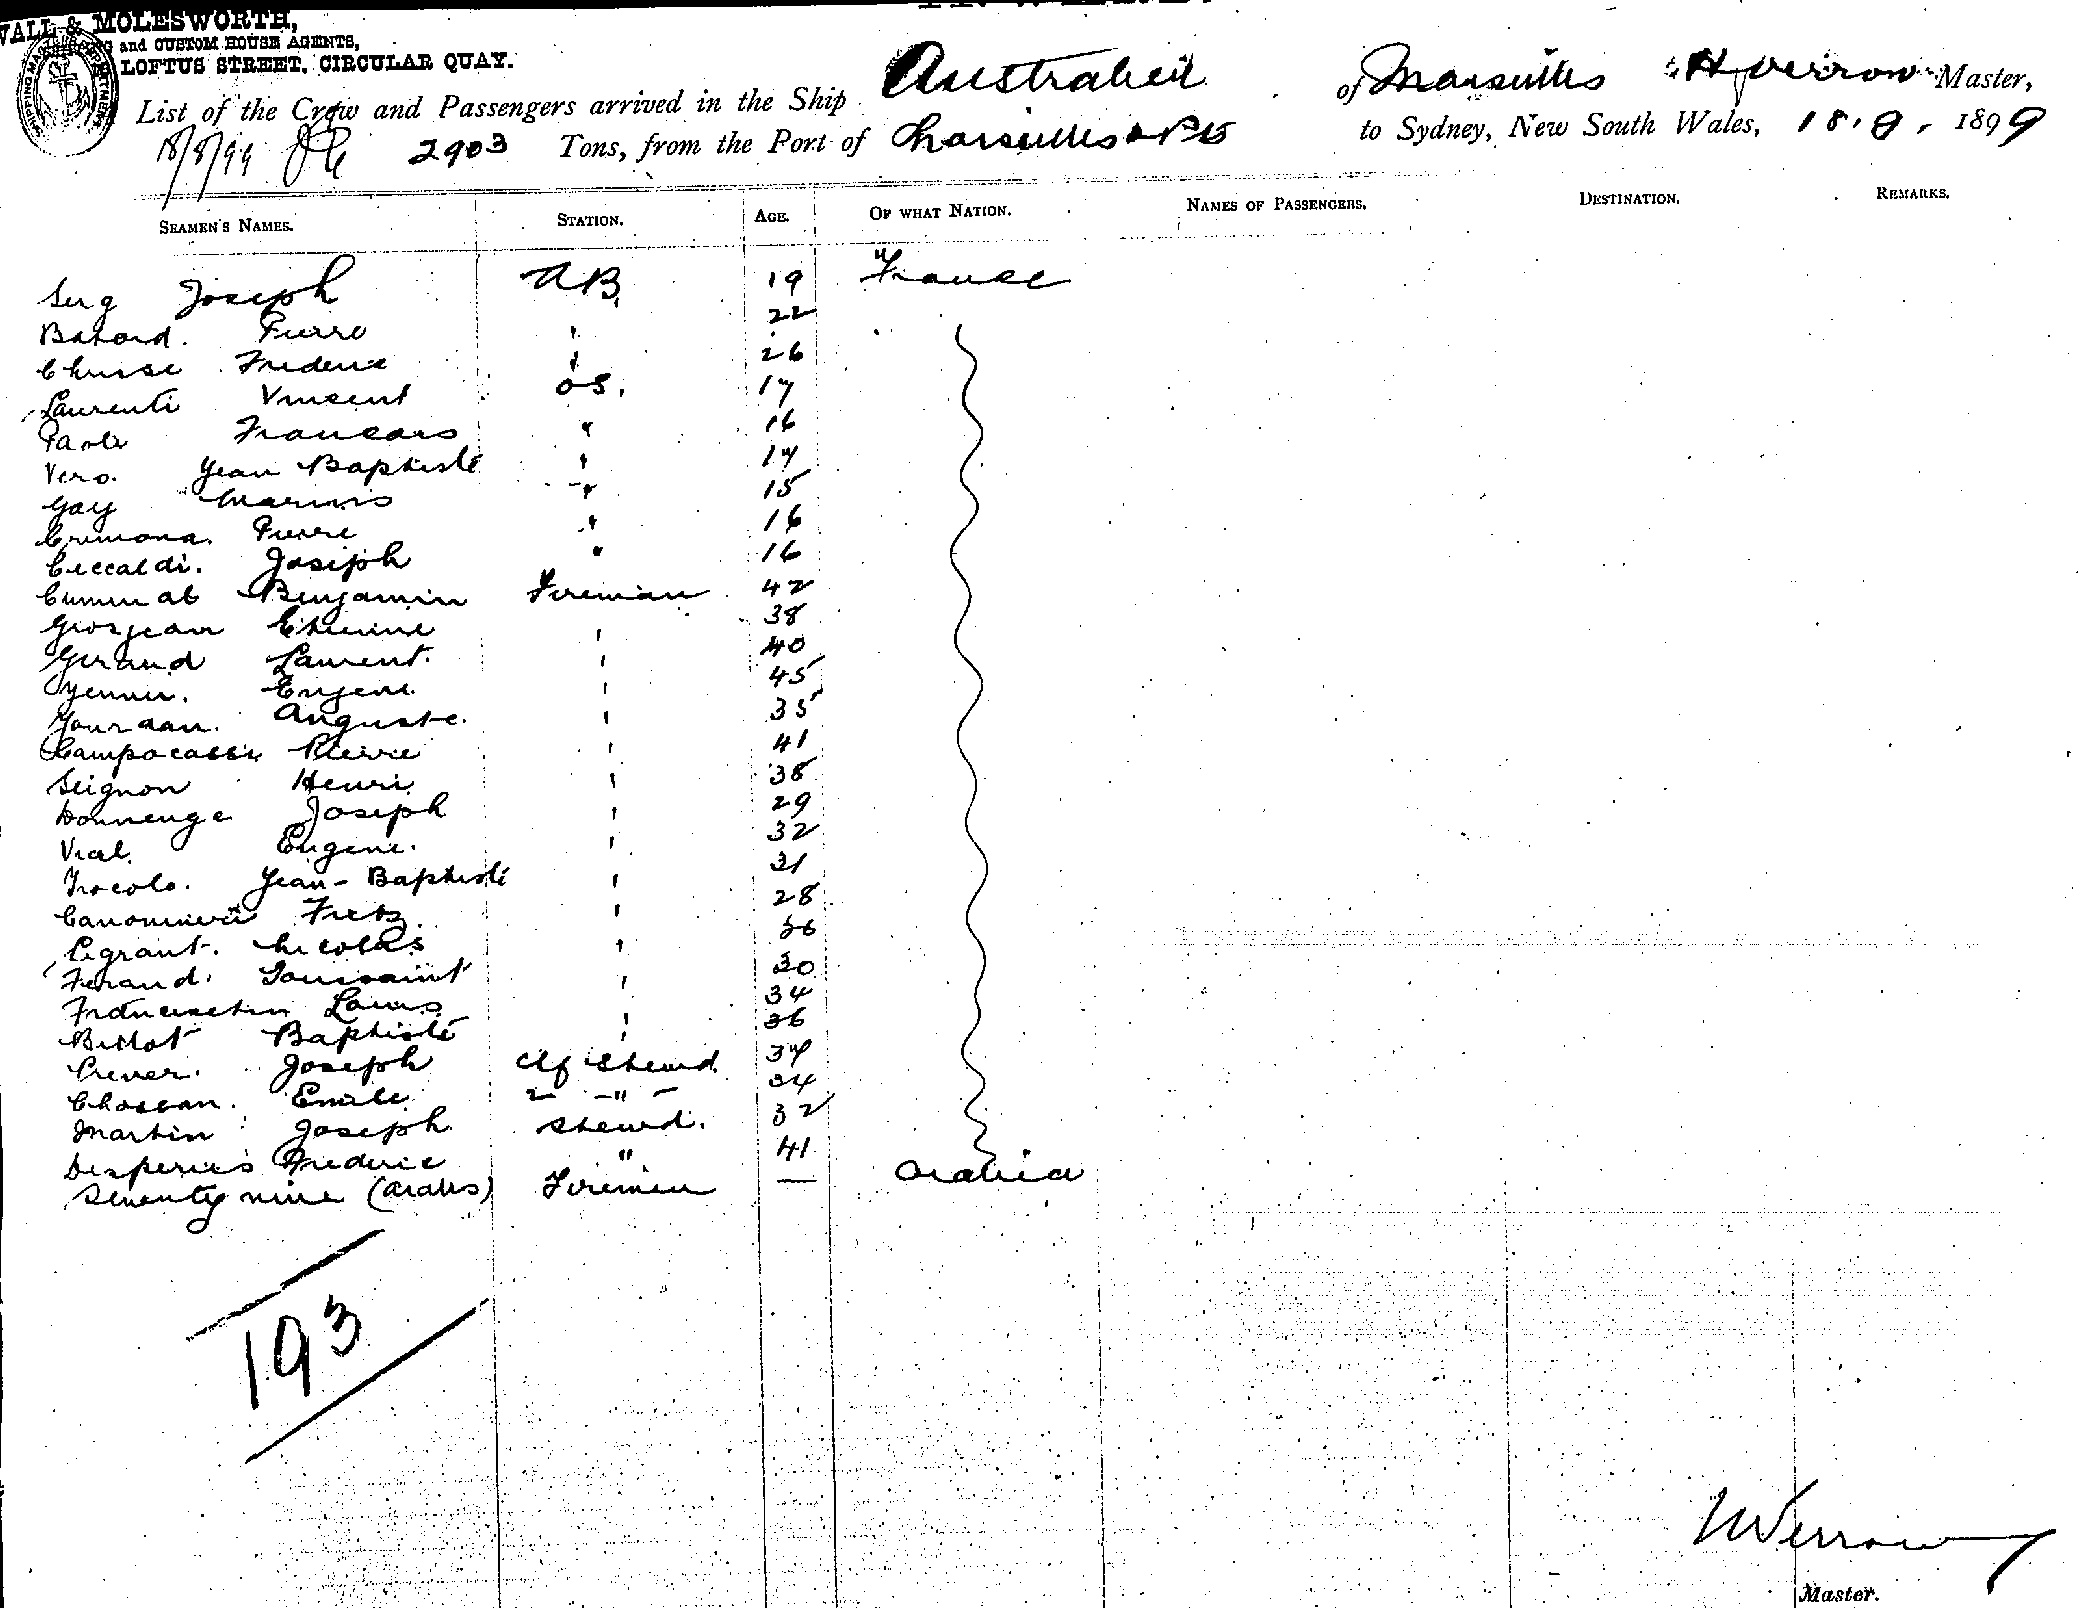 WALL & MOLESWORTH,
and CUSTOM HOUSE AGENTS,
LOFTUS STREET, CIRCULAR QUAY.
List of the Crew and Passengers arrived in the Ship Australien of Marseilles Master,
18/8/99 2903 Tons, from the Port of Marseilles & Pts to Sydney, New South Wales, 18.8.1899
SEAMEN'S NAMES. STATION. AGE. OF WHAT NATION. NAMES OF PASSENGERS. DESTINATION. REMARKS.
Serg Joseph AB. 19 France
Batord. Pierre " 22
Chusse Frederic " 26
Laurenti Vincent OS. 17
Paoli Francois " 16
Vero. Jean Baptiste " 17
Gay Marius " 15
Cremona. Pierre " 16
Ceccaldi. Joseph " 16
Benjamin Fireman 42
Grosjean Etienne " 38
Geraud Laurent. " 40
Eugene. " 45
Jourdan. Auguste. " 35
Campocassi Pierre " 41
Seignon Henri " 38
Donnenge Joseph " 29
Vial. Eugene. " 32
Trocolo. Jean-Baptiste " 31
Fritz. " 28
Nicolas " 36
Feraud. Toussaint " 30
Louis " 34
Billot Baptiste " 36
Joseph Chf Stewd. 34
Chossan. Emile 2 " 34
Martin Joseph Stewd. 32
Desperies Frederic " 41
Seventy nine (Arabs) Firemen — Arabia
193
Master.